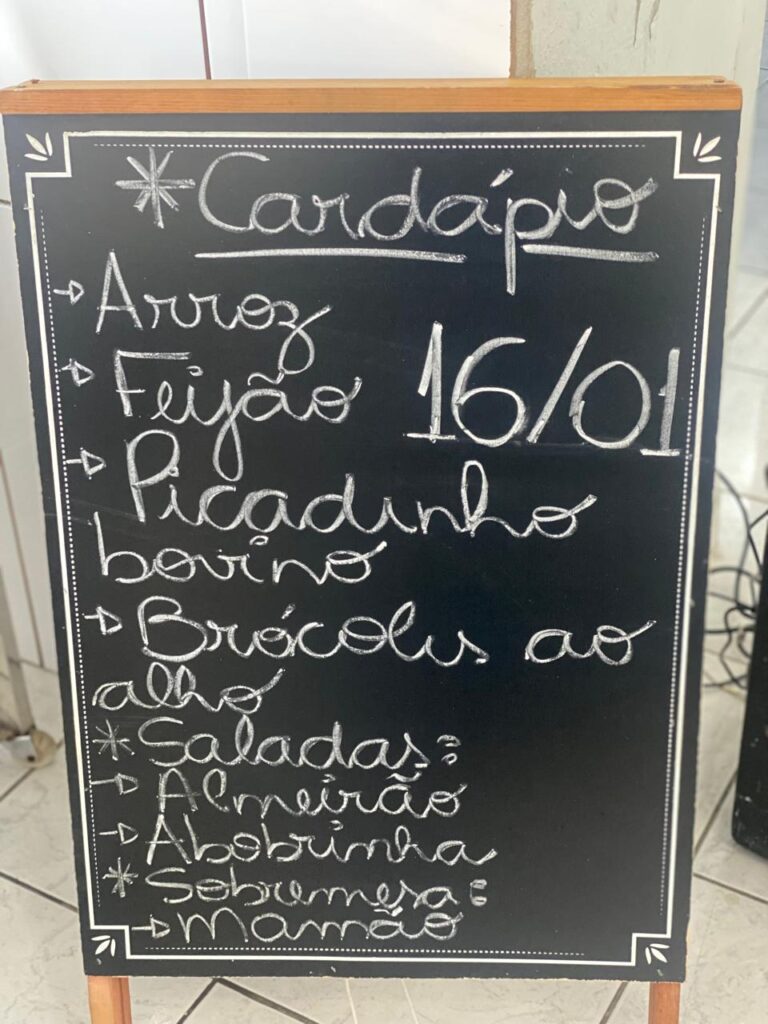 *Cardápio
→ Arroz
→ Feijão
16/01
→ Picadinho
bovino
→ Brócolis ao
alho
* Saladas:
→ Almeirão
→ Abobrinha
* Sobremesa:
→ Mamão